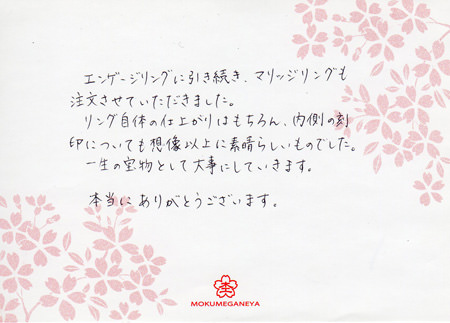 エンゲージリングに引き続き、マリッジリングも
注文させていただきました。
リング自体の仕上がりはもちろん、内側の刻
印についても想像以上に素晴らしいものでした。
一生の宝物として大事にしていきます。
本当にありがとうございます。
MOKUMEGANEYA